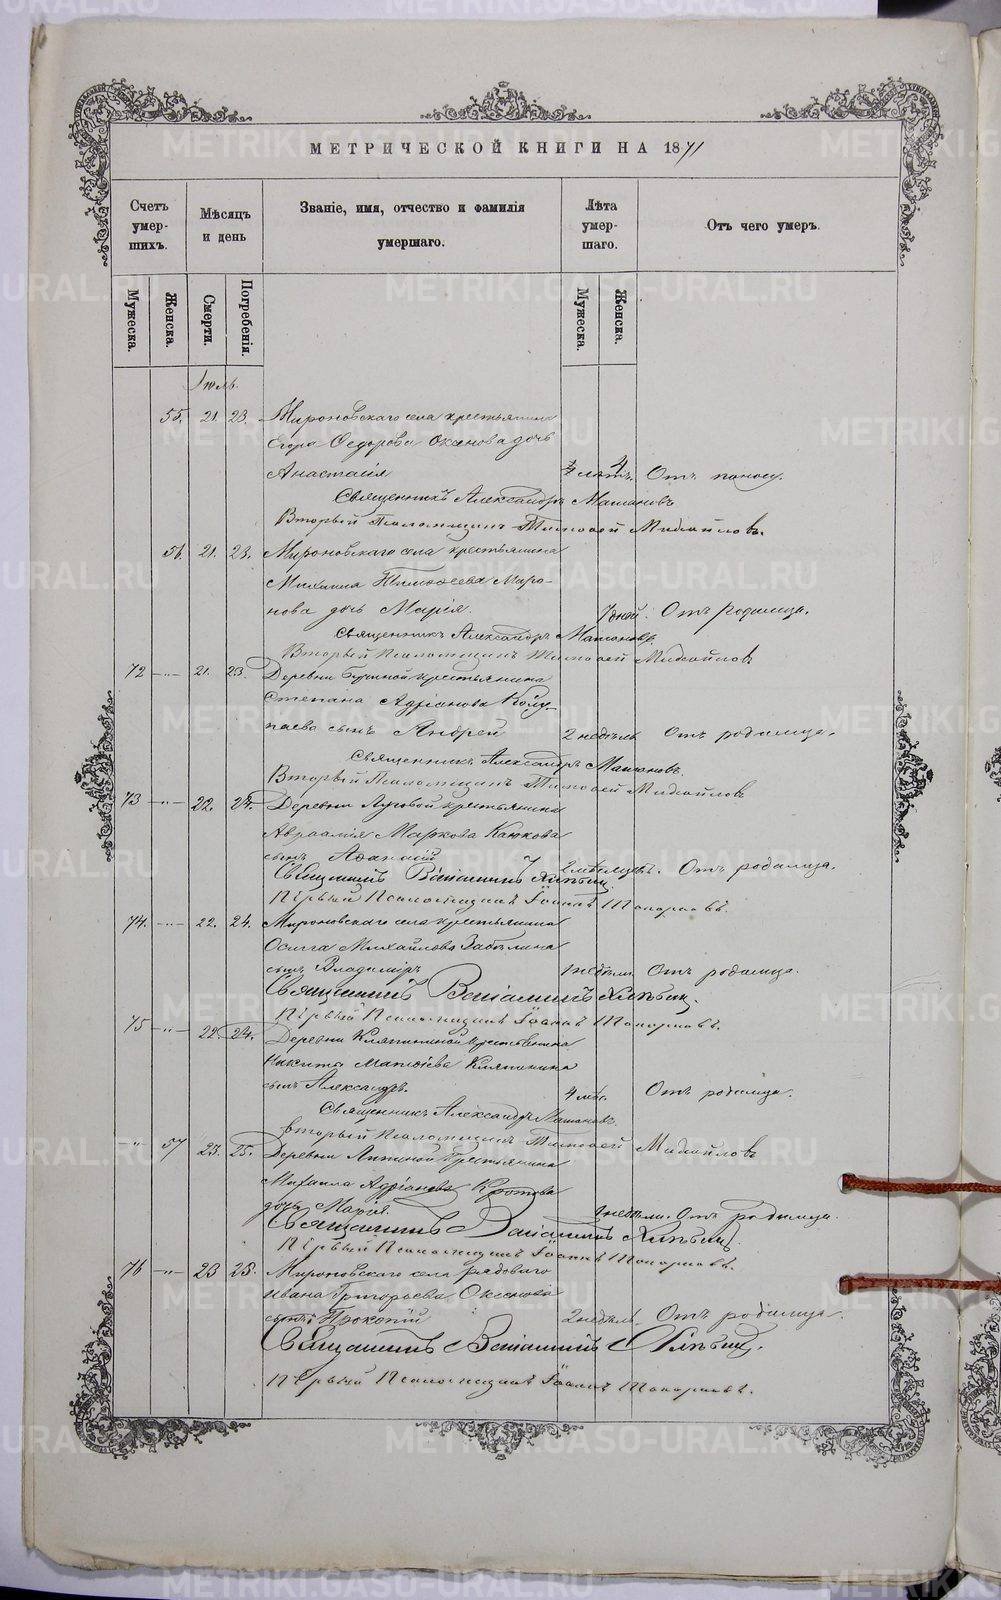 МЕТРИЧЕСКОЙ КНИГИ НА 1871
Счетъ умер-шихъ.
Мѣсяцъ и день
Званіе, имя, отчество и фамилія умершаго.
Лѣта умер-шаго.
Отъ чего умеръ.
Мужеска.
Женска.
Смерти.
Погребенія.
Мужеска.
Женска.
Іюль.
55. 21. 23. Мироновскаго села крестьянина
Егора Ѳедорова Оксенова дочь
Анастасія 4 лѣтъ. Отъ поносу.
Священникъ Александръ
Вторый Псаломщикъ Тимоѳей Михайловъ.
56. 21. 23. Мироновскаго села крестьянина
Михаила Тимоѳеева Миро-
нова дочь Марія. 7 дней. Отъ родимца.
Священникъ Александръ
Вторый Псаломщикъ Тимоѳей Михайловъ
72 —"— 21. 23. Деревни крестьянина
Степана Адріанова Колу-
паева сынъ Андрей 2 недѣль Отъ родимца.
Священникъ Александръ
Вторый Псаломщикъ Тимоѳей Михайловъ
73 —"— 22. 24. Деревни Луговой крестьянина
Авраамія Маркова Каюкова
сынъ Аѳанасій 2 мѣсяцевъ. Отъ родимца.
Священникъ Веніаминъ
Первый Псаломщикъ Іоаннъ Топорковъ.
74. —"— 22. 24. Мироновскаго села крестьянина
Осипа Михайлова Забѣлина
сынъ Владиміръ недѣли Отъ родимца.
Священникъ Веніаминъ
Первый Псаломщикъ Іоаннъ Топорковъ.
75 —"— 22. 24. Деревни Кляпиной крестьянина
Никита Матѳіева Кляпинина
сынъ Александръ. 4 мѣс. Отъ родимца.
Священникъ Александръ
Вторый Псаломщикъ Тимоѳей Михайловъ
" 57 23. 25. Деревни Липиной крестьянина
Михаила Адріанова Кротова
дочь Марія. недѣли. Отъ родимца.
Священникъ Веніаминъ
Первый Псаломщикъ Іоаннъ Топорковъ.
76 —"— 23 25. Мироновскаго села рядоваго
Ивана Григорьева Оксенова
сынъ Прокопій 2 недѣль Отъ родимца.
Священникъ Веніаминъ
Первый Псаломщикъ Іоаннъ Топорковъ.
METRIKI.GASO-URAL.RU